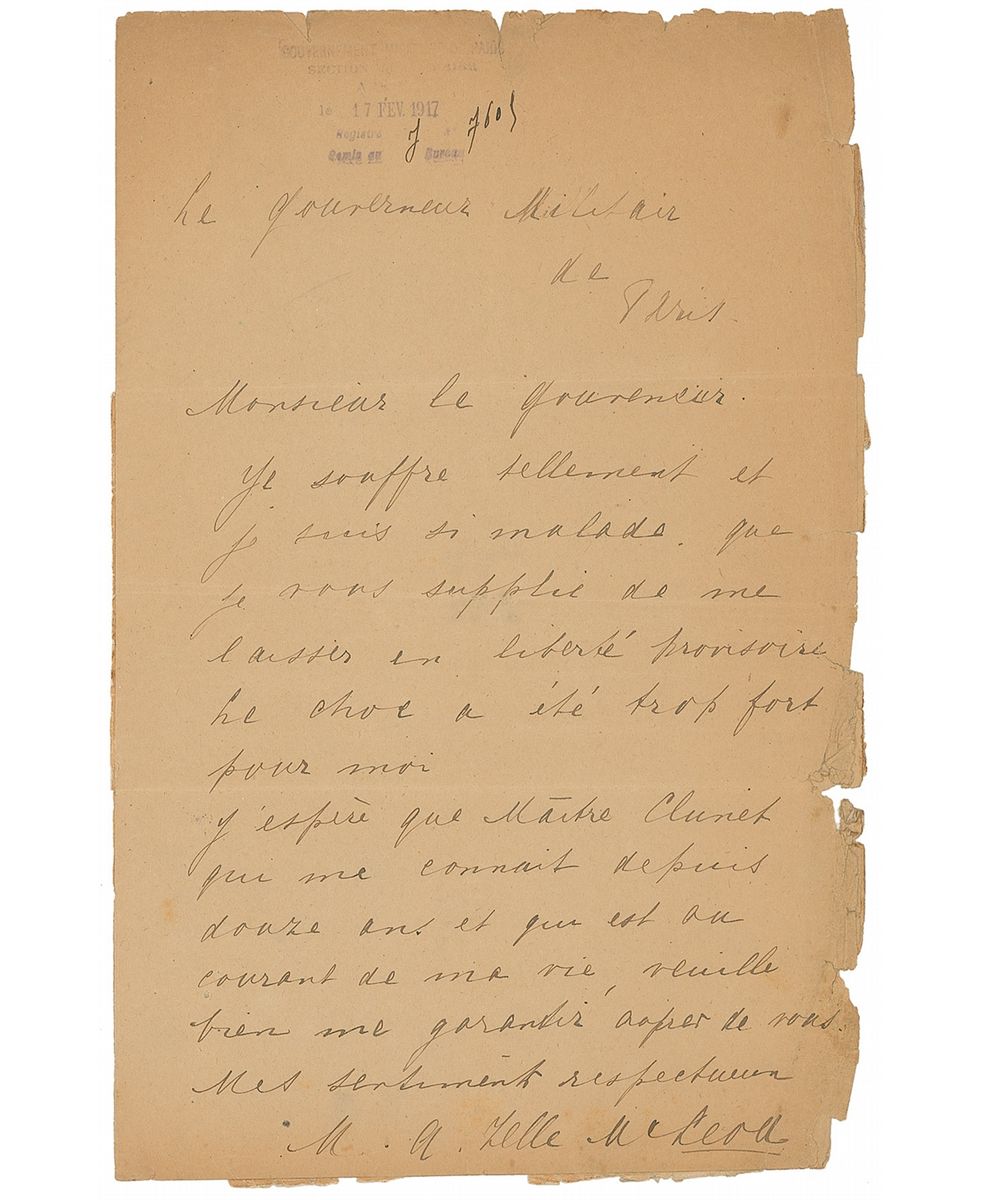 GOUVERNEMENT
SECTION
le 17 FEV. 1917
Registre
7 7605
Remis au Bureau
Le Gouverneur Militair
de
Paris.
Monsieur le Gouveneur.
Je souffre tellement et
je suis si malade. que
je vous supplie de me
laisser en liberté provisoire
Le choc a été trop fort
pour moi
J'espère que Maître Clunet
qui me connait depuis
douze ans et qui est au
courant de ma vie, veuille
bien me garantir auprer de vous.
Mes sentiments respectueux
M. G. Zelle McLeod